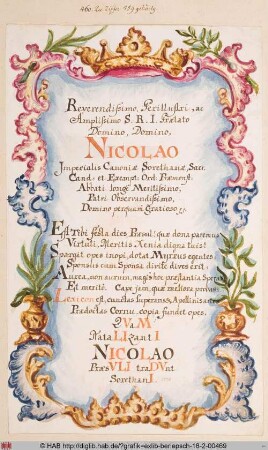 Reverendissimo, Perillustri, ac
Amplissimo S. R. I. Prælato
Domino, Domino,
NICOLAO
Imperialis Canoniæ Sorethanæ, Sacr.
Cand. et Exempt. Ord. Præmonst.
Abbati longe Meritissimo,
Patri Observandissimo,
Domino perquam Gratioso
Est Tibi festa dies Præsul: quæ dona paremus
Virtuti, Meritis Xenia digna tuis?
Spargit opes inopi, dotat Munus egentes:
Sponsus cum Sponsa divite dives erit.
Aurea, non aurum, magis hoc præstantia
Et meritò. Cape jam, quæ meliora
Lexicon est, cunctas superans, Apollinis artes
Prædoctas Cornu copia fundet opes.
QVaM
NataLIzantI
NICOLAO
PræsVLI traDVnt
SorethanI.
© HAB http://diglib.hab.de/?grafik=exlib-berlepsch-16-2-00469